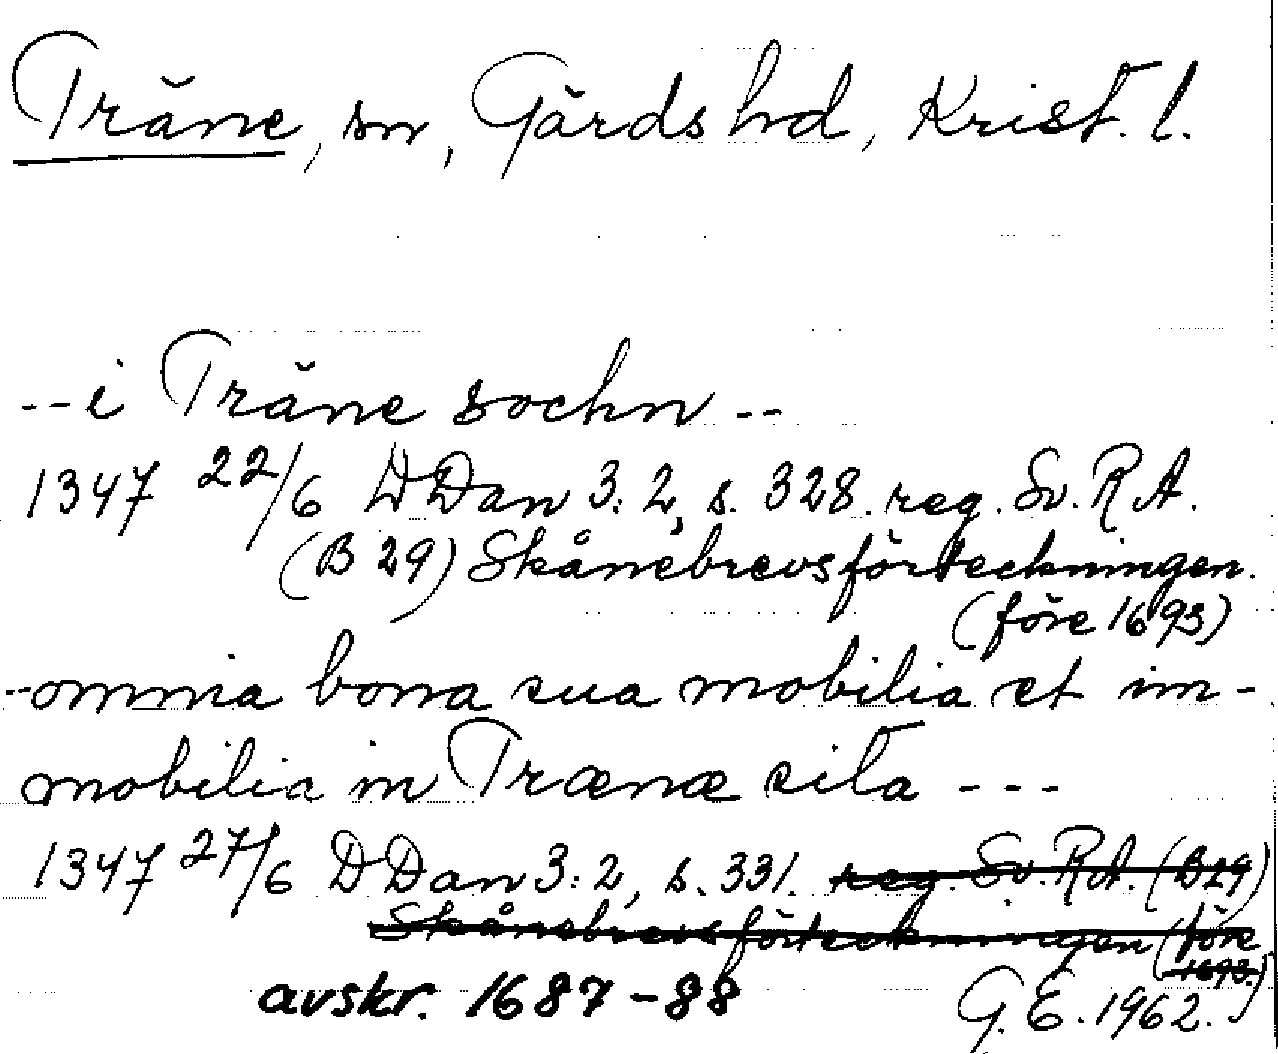 Träne, sn, Gärds hd, Krist. l.
--i Träne sochn --
1347 22/6 DDan 3:2, s. 328. reg. Sv. R A.
(B 29) Skånebrevsförteckningen.
(före 1693)
--omnia bona sua mobilia et im-
mobilia in Trænæ sita ---
1347 27/6 DDan 3:2, s. 331. reg. Sv. R.A. (B29)
Skånebrevsförteckningen (före
1693.)
avskr. 1687-88 G. E. 1962.